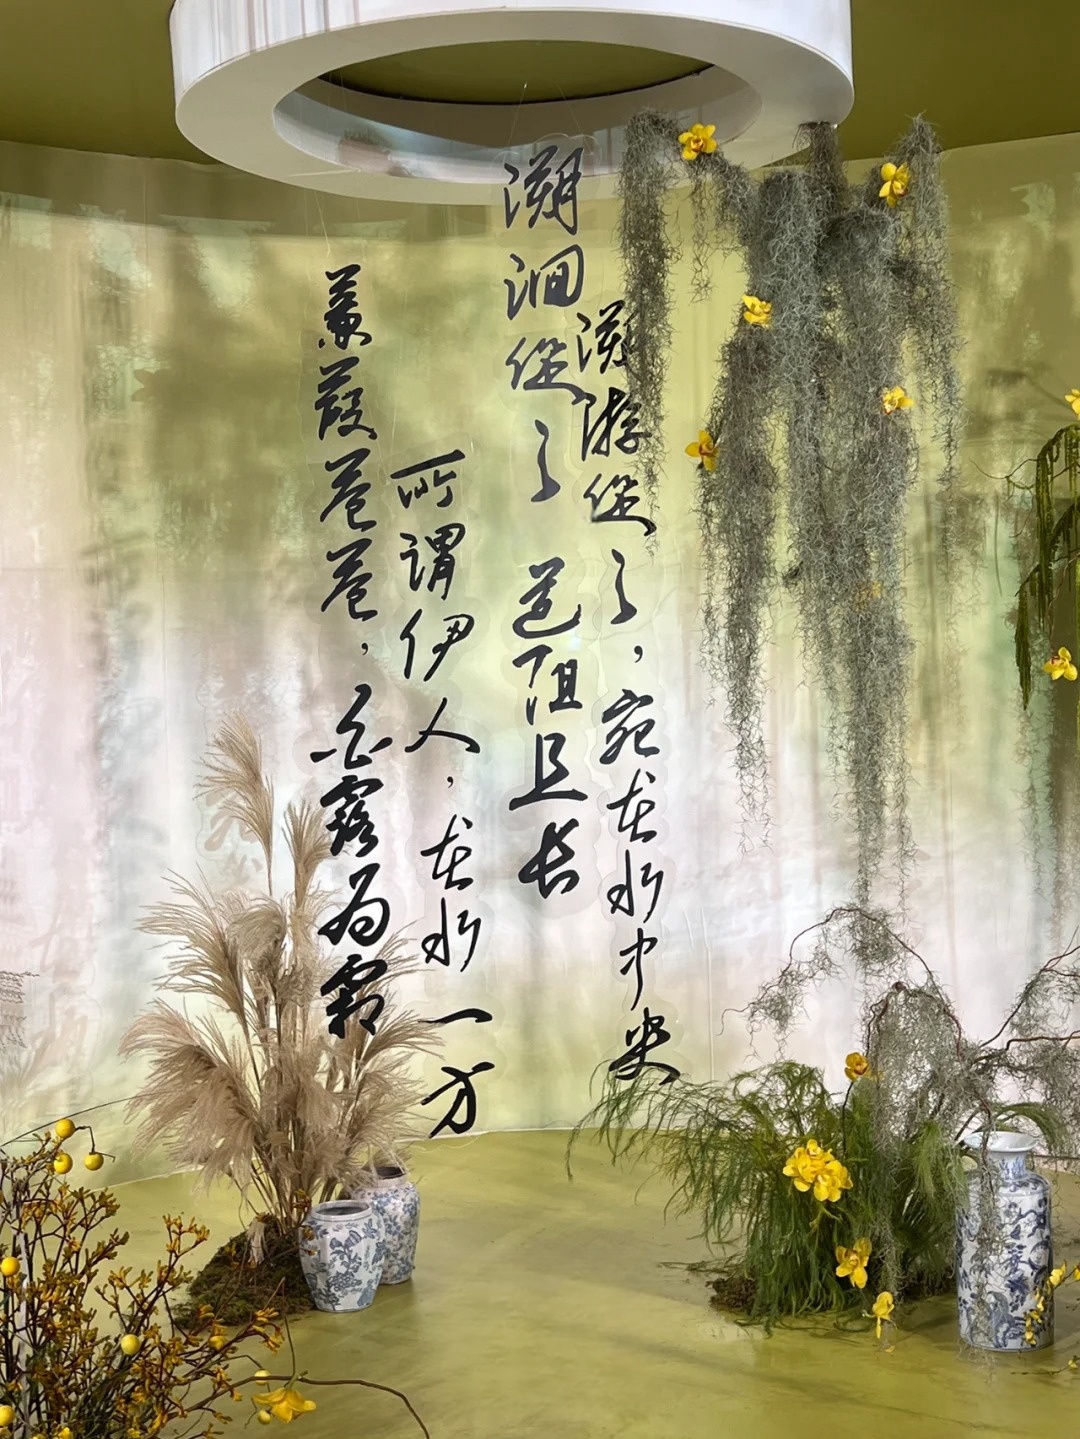 蒹葭苍苍，白露为霜
所谓伊人，在水一方
溯洄從之 道阻且长
溯游從之，宛在水中央